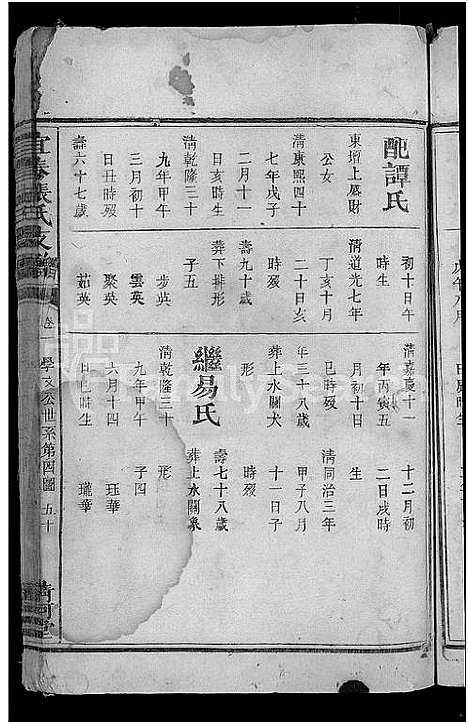 配譚氏
東壇上盛財
公女
清康熙四十
七年戊子
二月十一
日亥時生
清乾隆三十
九年甲午
三月初十
日丑時歿
壽六十七歲
初十日午
時生
清道光七年
丁亥十月
二十日亥
時歿
壽九十歲
葬下排形
子五
步英
雲英
聚英
茹英
清嘉慶十一
年丙寅五
月初十日
巳時歿
年三十八歲
葬上水關犬
形
繼易氏
清乾隆三十
九年甲午
六月十四
日巳時生
十二月初
二日戌時
生
清同治三年
甲子八月
十一日子
時歿
壽七十八歲
葬上水關象
形
子四
珏華
瓏華
宜春張氏支譜
卷
學文公世系第四圖
五十
清河堂
FamilySearch